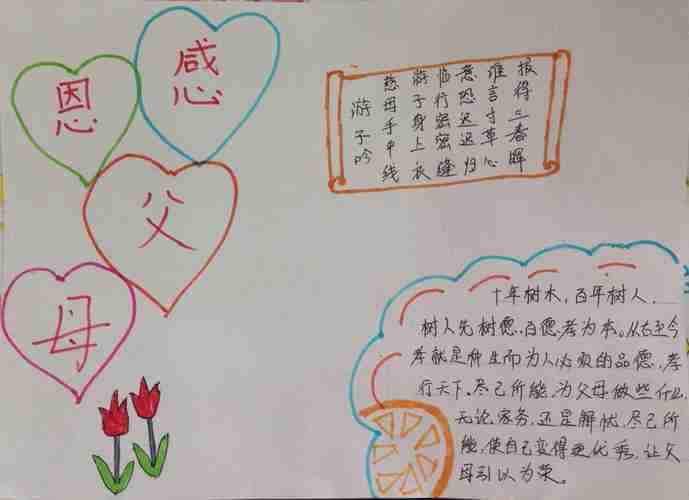 感
恩
父
母
游子吟
慈母手中线
游子身上衣
临行密密缝
意恐迟迟归
谁言寸草心
报得三春晖
十年树木，百年树人，
树人先树德，百德孝为本。从古至今
孝就是种生而为人必须的品德，孝
行天下，尽己所能，为父母做些什么，
无论家务，还是解忧，尽己所
能，使自己变得更优秀，让父
母引以为荣。